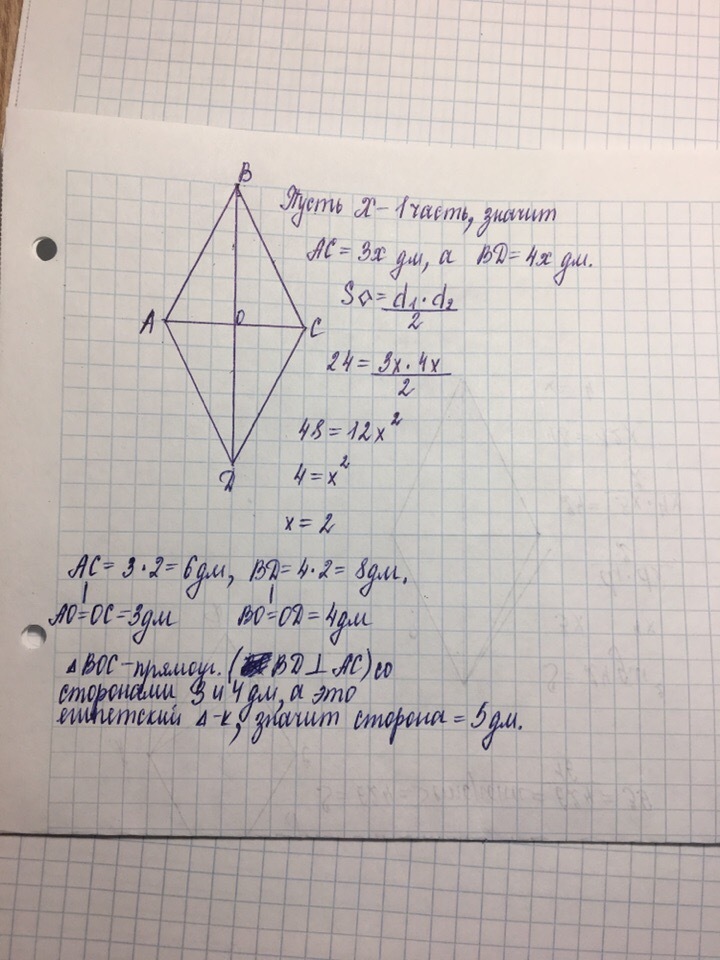 B
Пусть x - 1 часть, значит
AC = 3x дм, а BD = 4x дм.
S◇ = d₁ · d₂ / 2
A O C
24 = 3x · 4x / 2
48 = 12x²
D
4 = x²
x = 2
AC = 3 · 2 = 6 дм, BD = 4 · 2 = 8 дм.
AO = OC = 3 дм BO = OD = 4 дм
△ BOC - прямоуг. (BD ⊥ AC) со
сторонами 3 и 4 дм, а это
египетский △-к, значит сторона = 5 дм.